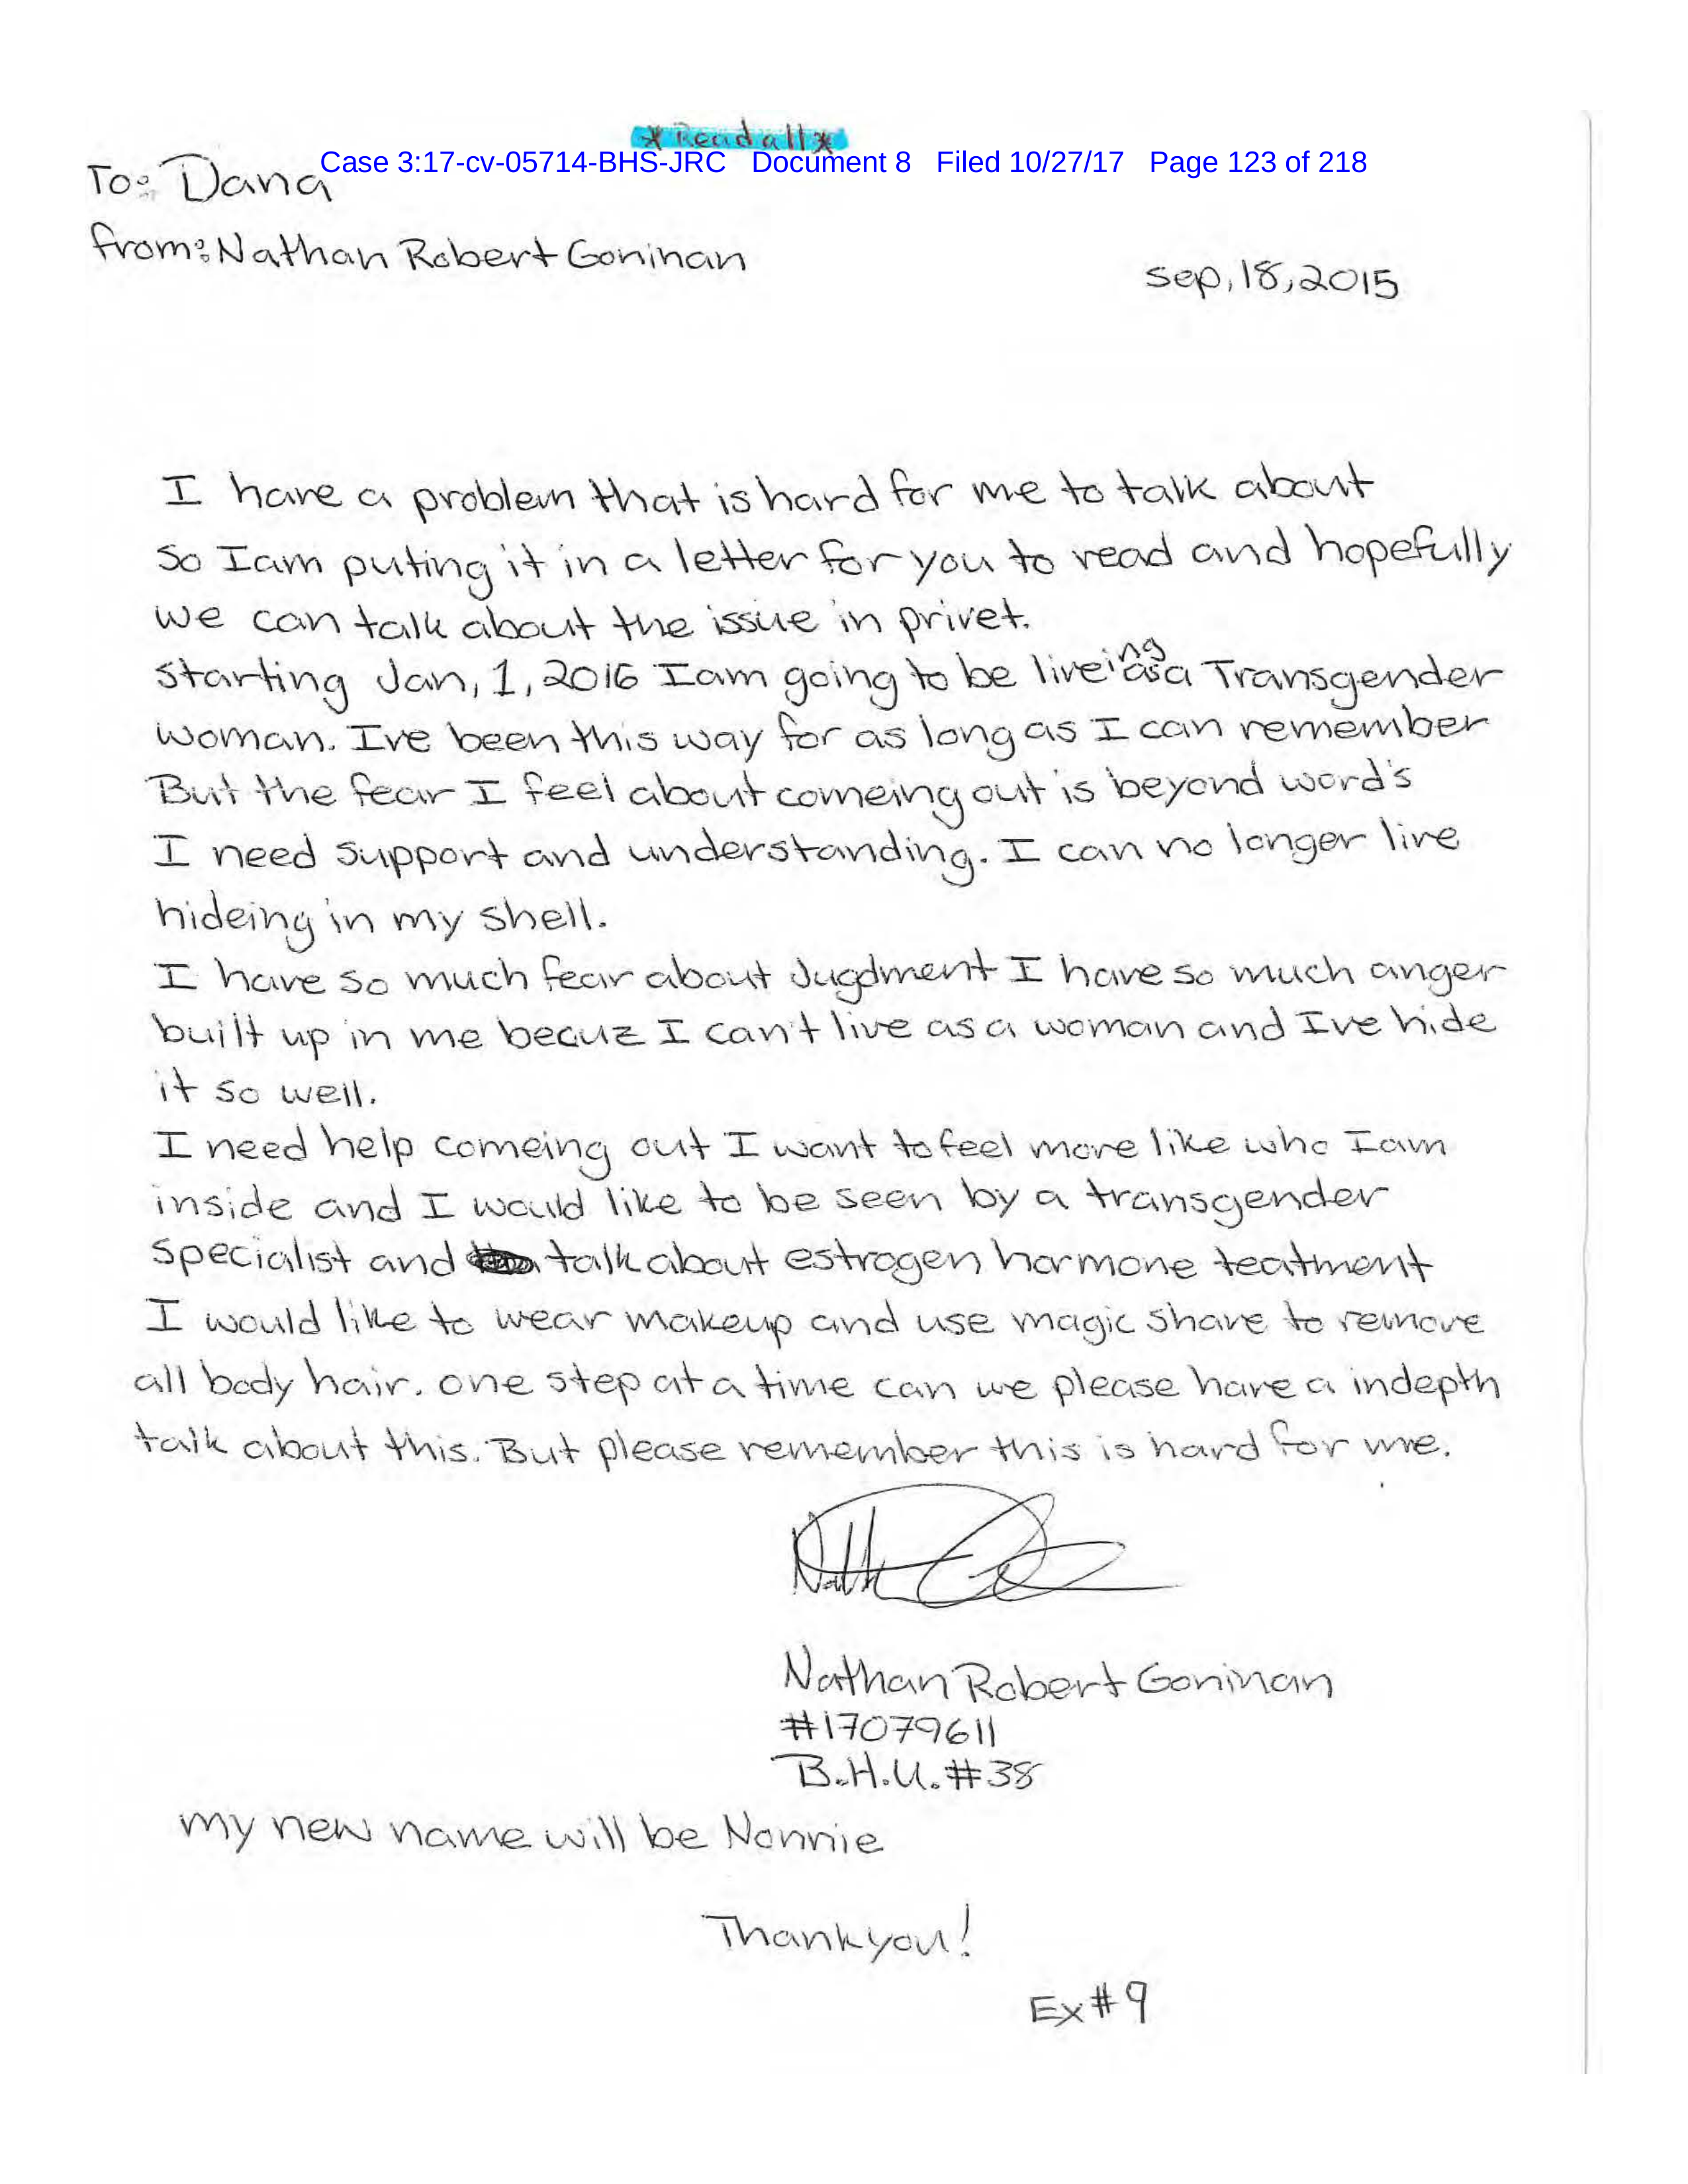 *Read all*
Case 3:17-cv-05714-BHS-JRC Document 8 Filed 10/27/17 Page 123 of 218
To: Dana
from: Nathan Robert Goninan
sep, 18, 2015
I have a problem that is hard for me to talk about
So I am puting it in a letter for you to read and hopefully
we can talk about the issue in privet.
starting Jan, 1, 2016 I am going to be liveing as a Transgender
woman. Ive been this way for as long as I can remember
But the fear I feel about comeing out is beyond word's
I need support and understanding. I can no longer live
hideing in my shell.
I have so much fear about Jugdment I have so much anger
built up in me becuz I can't live as a woman and Ive hide
it so well.
I need help comeing out I want to feel more like who I am
inside and I would like to be seen by a transgender
specialist and talk about estrogen hormone teatment
I would like to wear makeup and use magic shave to remove
all body hair. one step at a time can we please have a indepth
talk about this. But please remember this is hard for me.
Nathan Robert Goninan
#17079611
B.H.U. #38
my new name will be Nonnie
Thank you!
Ex #9